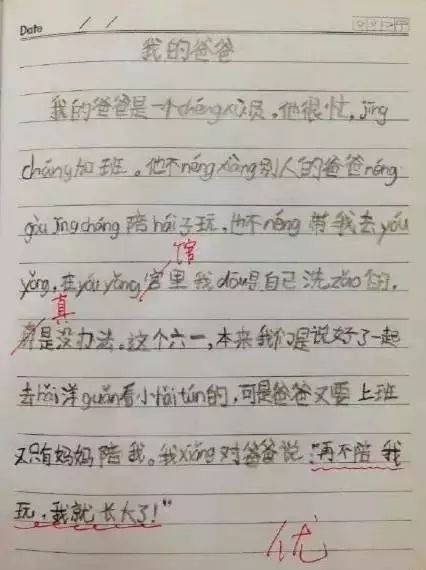 Date / /
我的爸爸
我的爸爸是一个chéngxù员，他很忙，jīng
cháng加班。他不néng xiàng别人的爸爸néng
gòu jīng cháng 陪hái子玩，也不néng 带我去yóu
馆
yǒng，在yóu yǒng 官里我dōu是自己洗zǎo的，
真
是没办法。这个六一，本来我们是说好了一起
去hǎi洋guǎn看小hǎi tún的，可是爸爸又要上班
又只有妈妈陪我。我xiǎng对爸爸说"再不陪我
玩，我就长大了！"
优